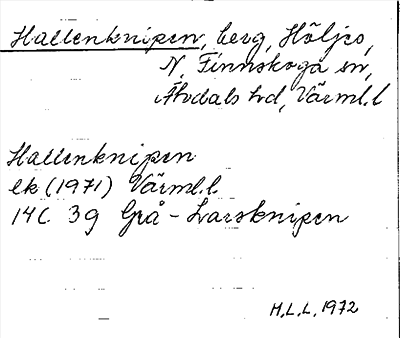 Hallenknipen, berg, Höljes,
N. Finnskoga sn,
Älvdals hd, Värml.l
Hallenknipen
ek (1971) Värml.l.
14C 3g Grå-Larsknipen
M.L.L. 1972